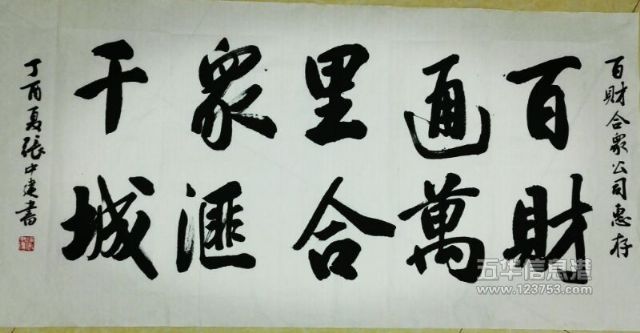 百財合衆公司惠存
百財
通萬
里合
衆匯
千城
丁酉夏張中建書
五华信息港
www.123753.com